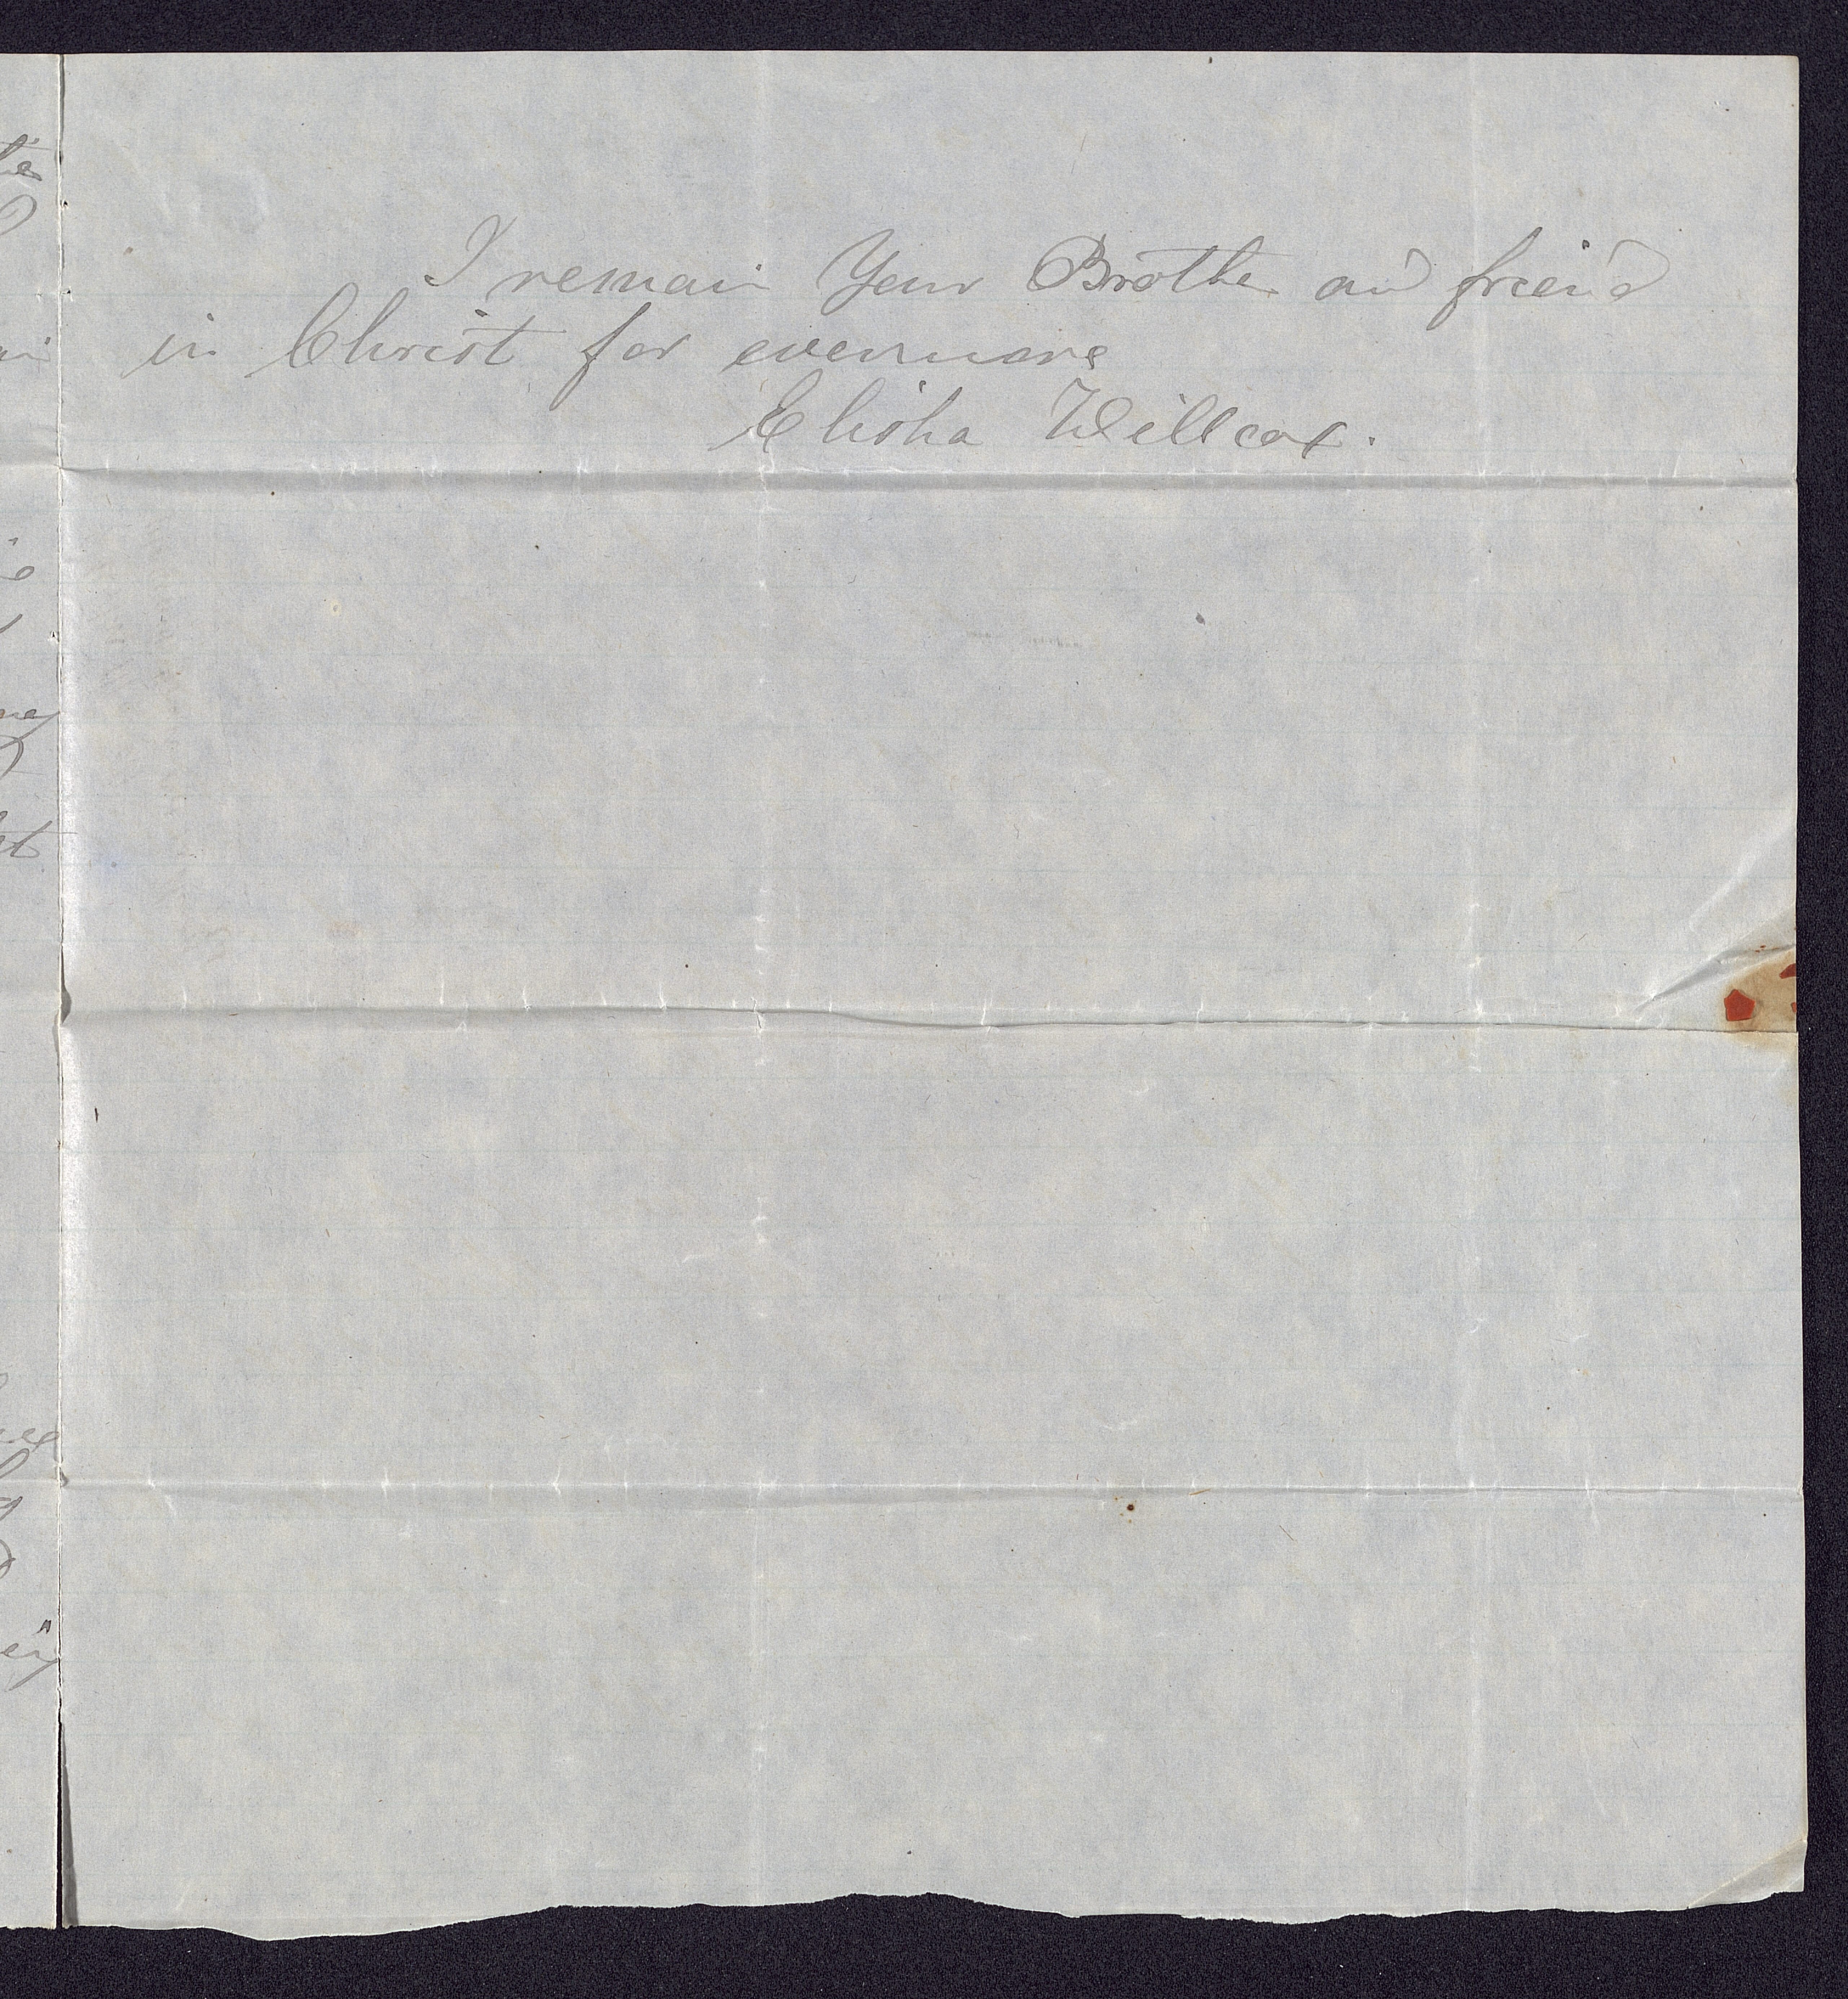 I remain Your Brother and friend
in Christ for evermore
Elisha Willcox.